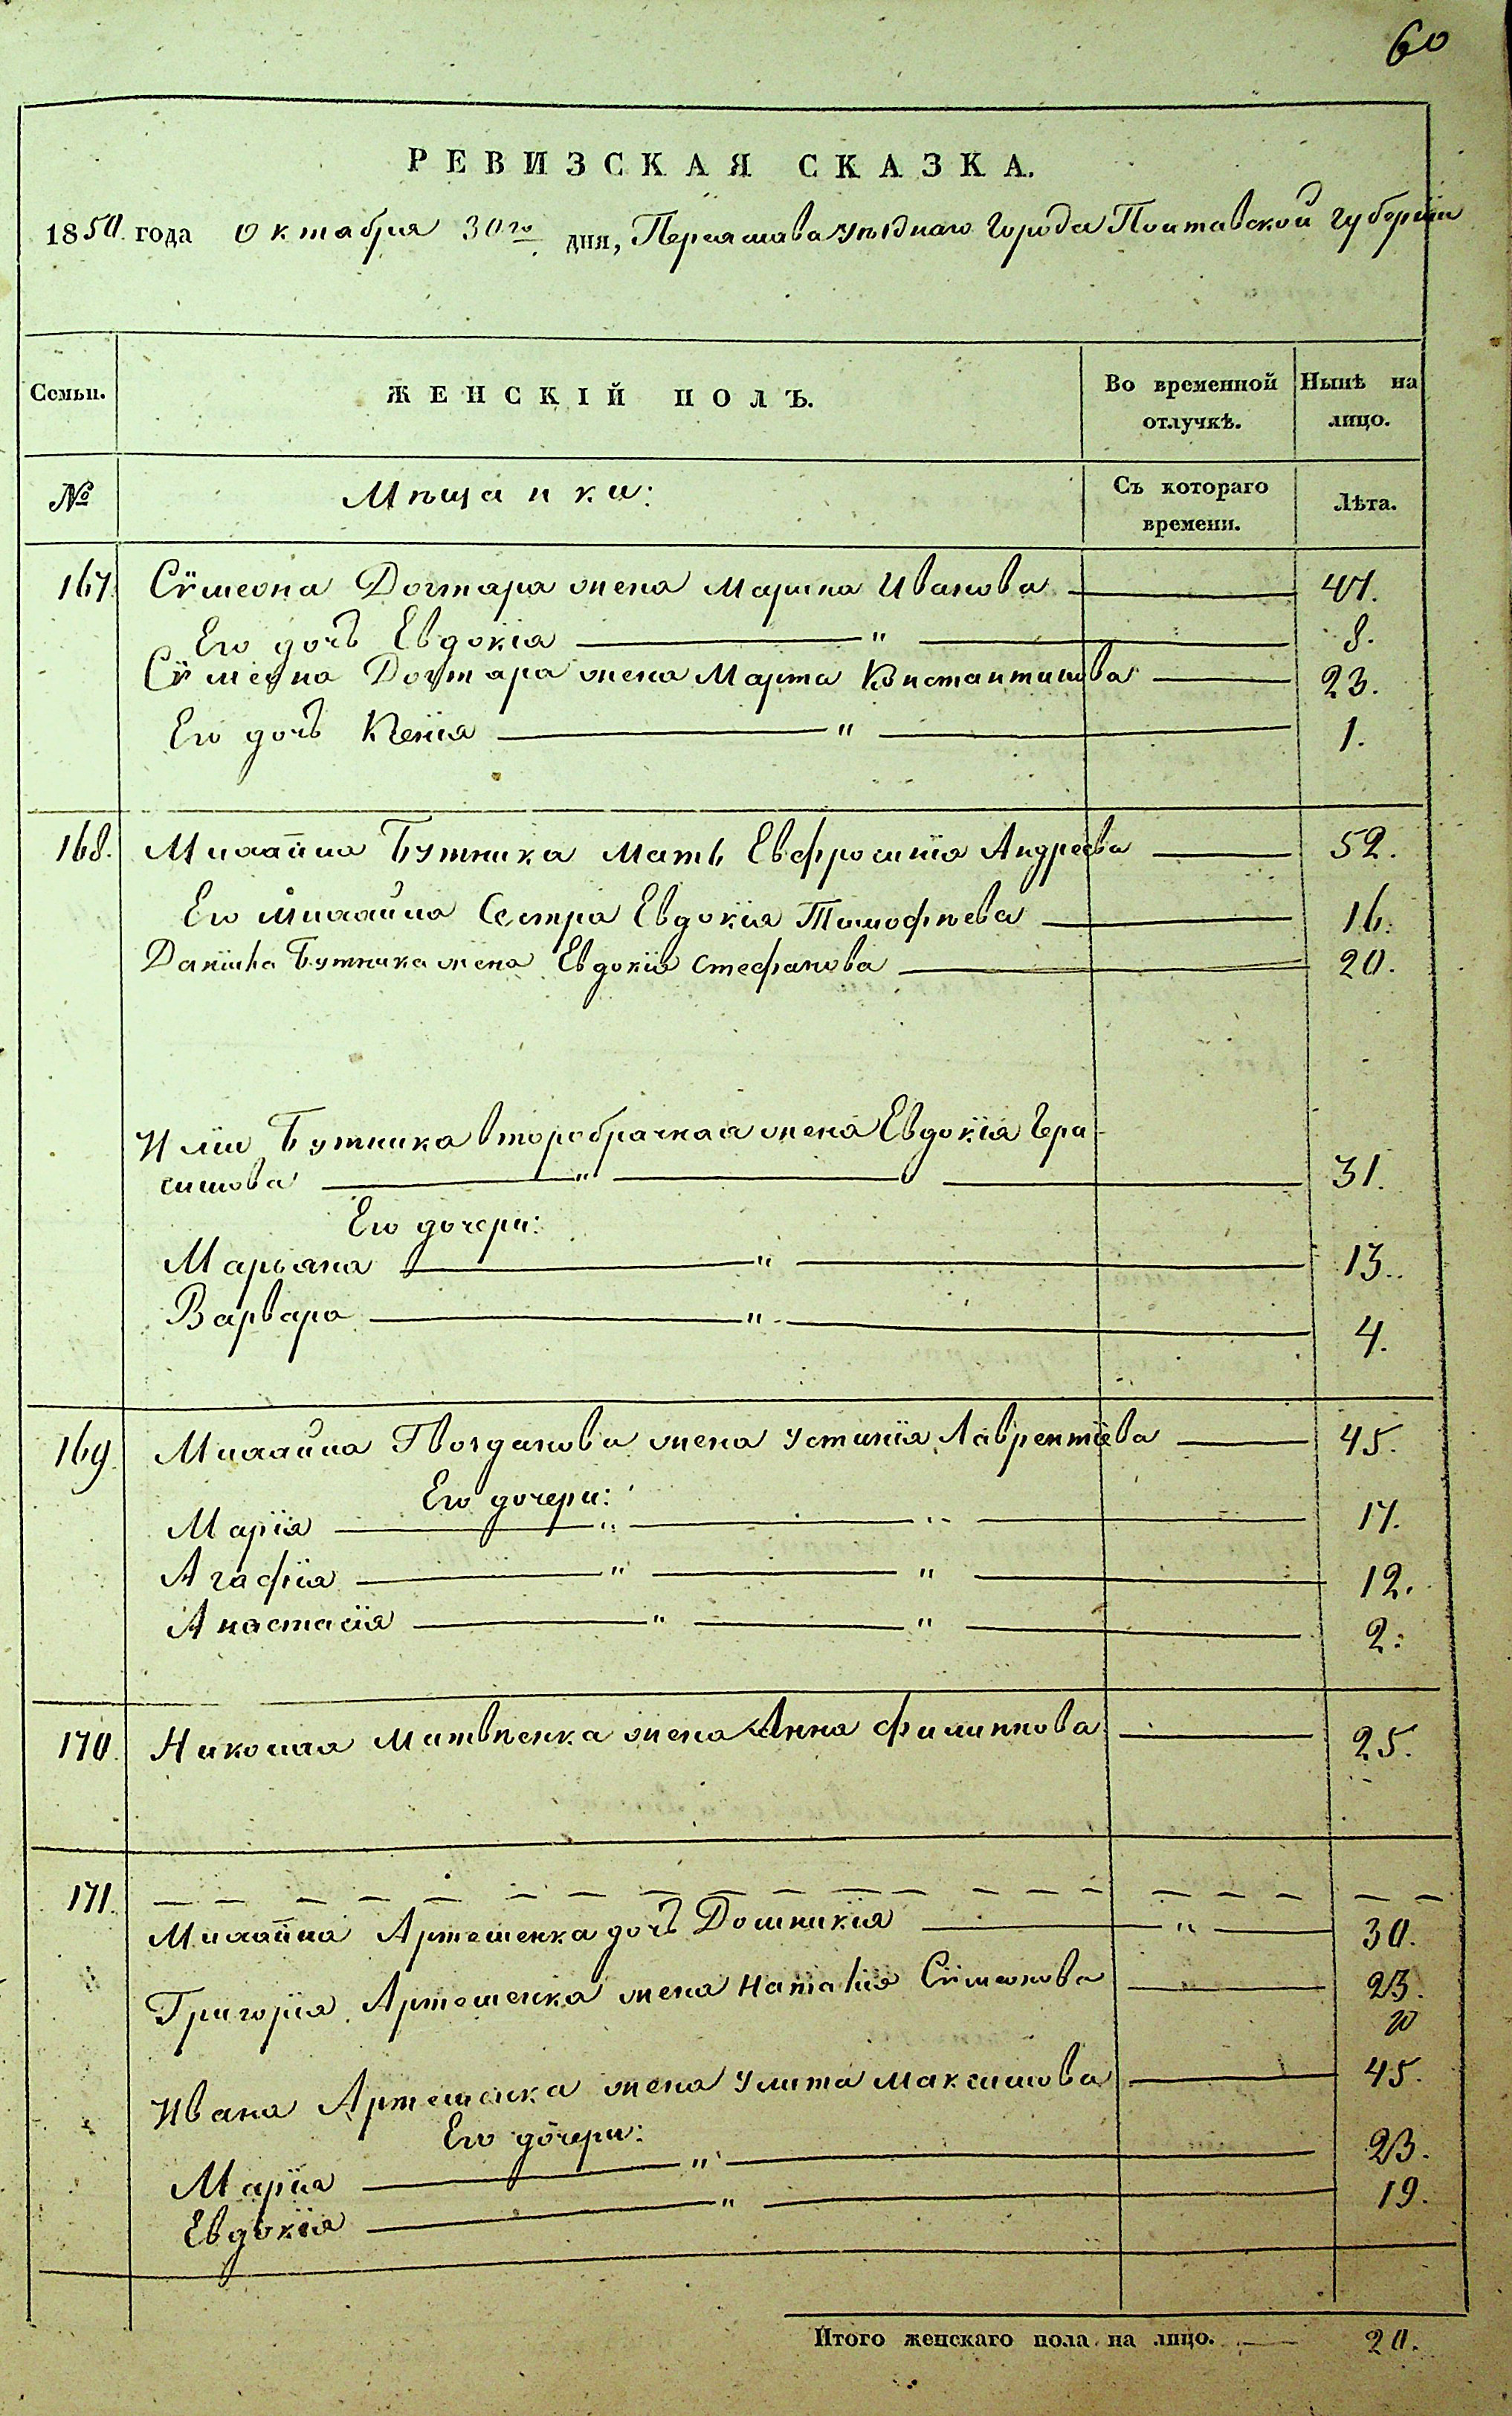 60
РЕВИЗСКАЯ СКАЗКА.
1850 года Октября 30го дня, Переяслава уѣзднаго города Полтавской губерніи
Семьи. ЖЕНСКІЙ ПОЛЪ. Во временной отлучкѣ. Нынѣ на лицо.
№ Мѣщанки: Съ котораго времени. Лѣта.
167. Сѵмеона Догтара жена Марина Иванова 47.
Его дочь Евдокія " 8.
Сѵмеона Догтара жена Марта Константинова 23.
Его дочь Ксенія " 1.
168. Михайла Бутника мать Евфросинія Андреева 52.
Его Михайла сестра Евдокія Тимофѣева 16.
Даніила Бутника жена Евдокія Стефанова 20.
Иліи Бутника второбрачная жена Евдокія Гера-
симова " 31.
Его дочери:
Марьяна " 13.
Варвара " 4.
169. Михайла Гвозданова жена Устинія Лаврентіева 45.
Его дочери:
Марія " " 17.
Агафія " " 12.
Анастасія " " 2.
170. Николая Матвѣенка жена Анна Филиппова 25.
171.
Михайла Артеменка дочь Домникія " 30.
Григорія Артеменка жена Наталія Сѵмеонова 23.
20
Ивана Артеменка жена Улита Максимова 45.
Его дочери:
Марія " 23.
Евдокія " 19.
Итого женскаго пола на лицо. 20.